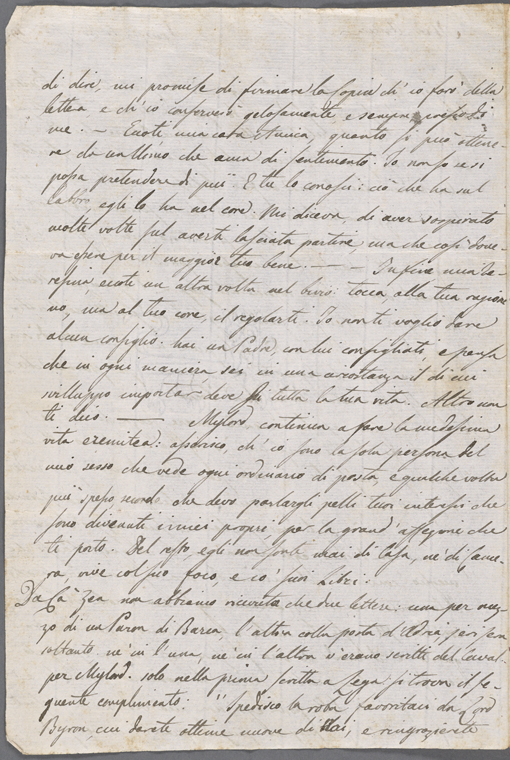 di dire, mi promise di firmare la copia ch' io farò della
lettera e ch'io conserverò gelosamente e sempre presso di
me. — Eccoti mia cara Amica, quanto si può ottene-
re da un Uomo che ama di sentimento. Io non so se si
possa pretendere di più. E tu lo conosci: ciò che ha sul
labbro, egli lo ha nel core. Mi diceva, di aver sospirato
molte volte sul averti lasciata partire, ma che così dove-
va essere per il maggior tuo bene. — — Infine mia Te-
resina eccoti un altra volta nel bivio: tocca alla tua ragione
no, ma al tuo core, il regolarti. Io non ti voglio dare
alcun consiglio: hai un Padre, con lui consigliati, e pensa
che in ogni maniera sei in una circostanza il di cui
sviluppo importar deve di tutta la tua vita. Altro non
ti dico. — Mylord, continua a fare la medesima
vita eremitica: assicuro, ch'io sono la sola persona del
mio sesso che vede ogni ordinario di posta, e qualche volta
più spesso, secondo che devo parlargli pelli tuoi interessi che
sono divenuti i miei proprj per la grand' affezione che
ti porto. Del resto, egli non sorte mai di Casa, nè di Came-
ra, vive col suo foco, e co' suoi Libri.
Da Cà Zen non abbiamo ricevuta che due lettere: una per mez-
zo di un Paron di Barca, l'altra colla posta d'Adria jeri sera
soltanto, nè in l'una, nè in l'altra v'erano scritti del Caval.
per Mylord. solo nella prima scritta a Lega si trova il se-
guente complimento: "Spedisco la roba favoritaci da Lord
Byron, cui darete ottime nuove di Noi, e ringrazierete